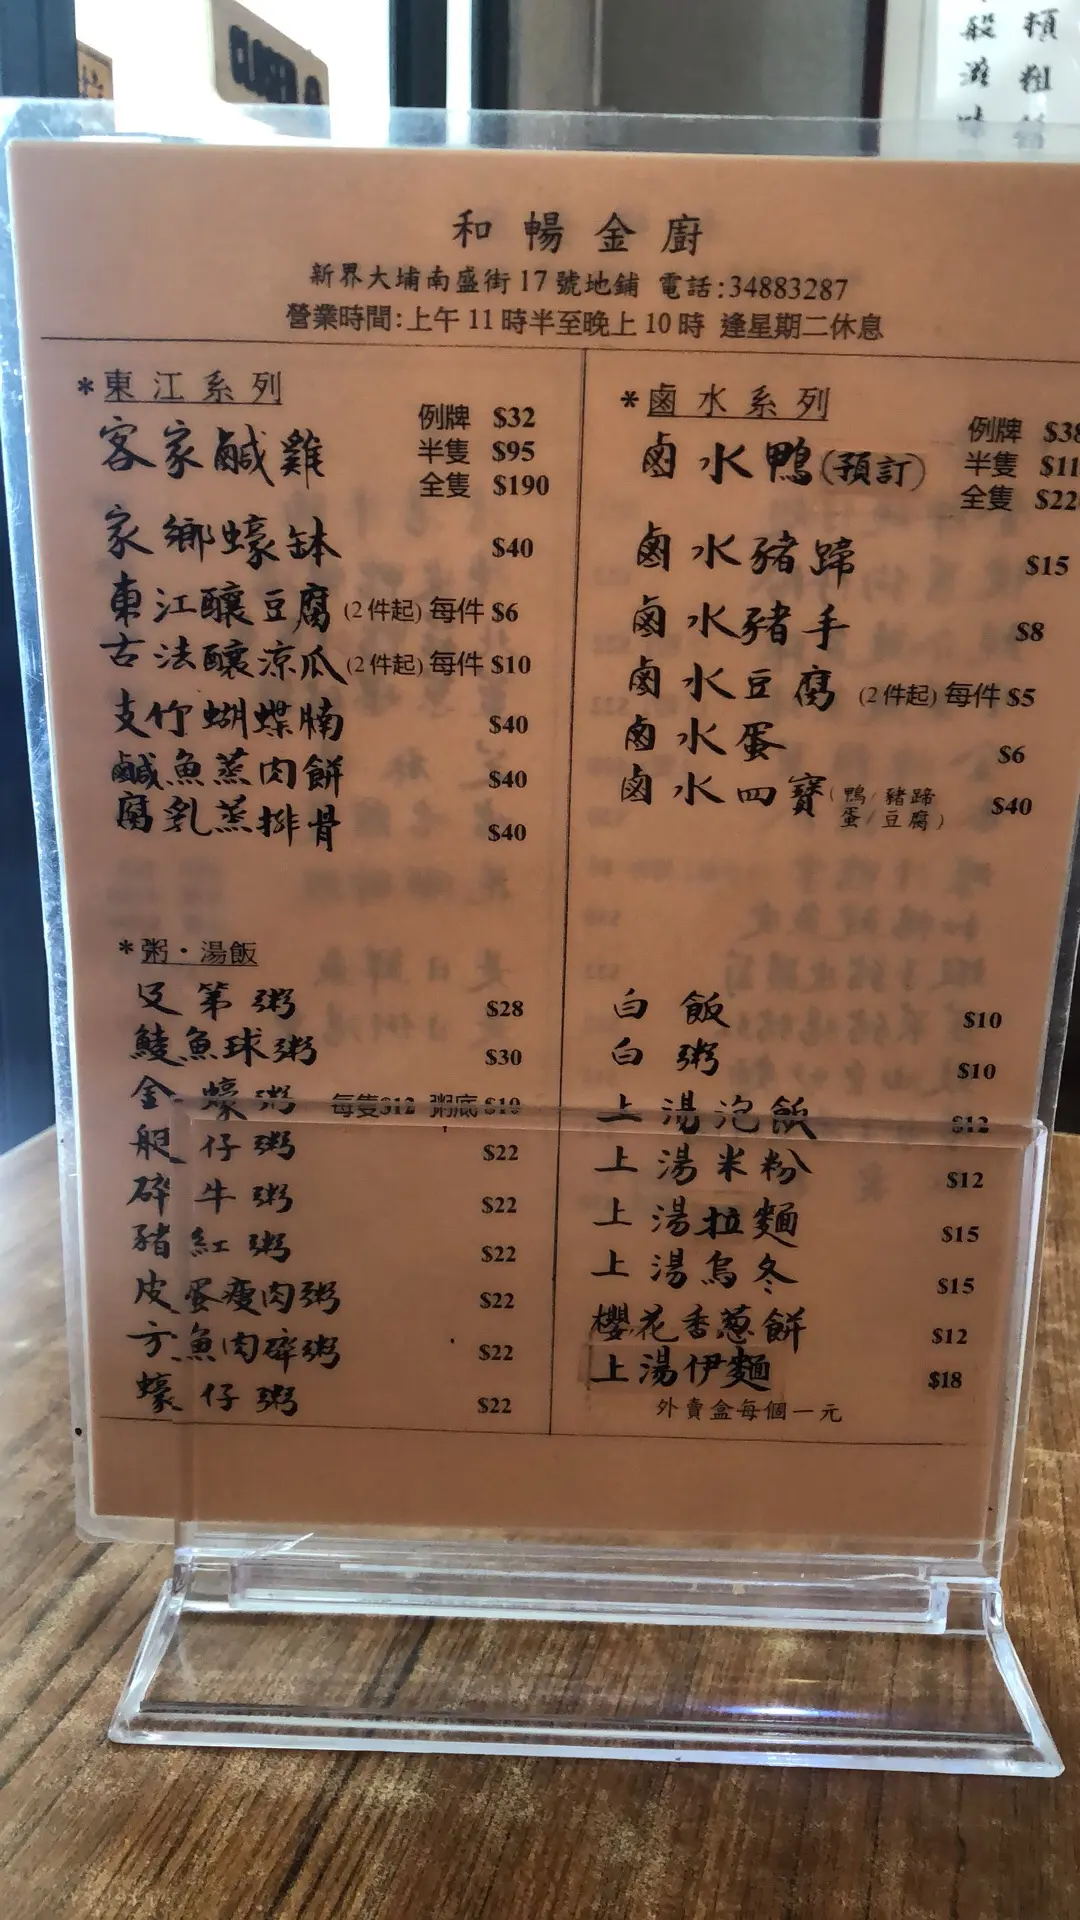 般 頛
滋 粗
味
和暢金廚
新界大埔南盛街17號地鋪 電話:34883287
營業時間:上午11時半至晚上10時 逢星期二休息
*東江系列
客家鹹雞 例牌 $32
半隻 $95
全隻 $190
家鄉蠔缽 $40
東江釀豆腐(2件起)每件 $6
古法釀涼瓜(2件起)每件 $10
支竹蝴蝶腩 $40
鹹魚蒸肉餅 $40
腐乳蒸排骨 $40
*鹵水系列
鹵水鴨(預訂) 例牌
半隻
全隻
鹵水豬蹄 $15
鹵水豬手 $8
鹵水豆腐 (2件起)每件 $5
鹵水蛋 $6
鹵水四寶(鴨/豬蹄 $40
蛋/豆腐)
*粥·湯飯
及第粥 $28
鯪魚球粥 $30
金蠔粥 每隻$12 粥底 $10
艇仔粥 $22
碎牛粥 $22
豬紅粥 $22
皮蛋瘦肉粥 $22
方魚肉碎粥 $22
蠔仔粥 $22
白飯 $10
白粥 $10
上湯泡飯 $12
上湯米粉 $12
上湯拉麵 $15
上湯烏冬 $15
櫻花香蔥餅 $12
上湯伊麵 $18
外賣盒每個一元